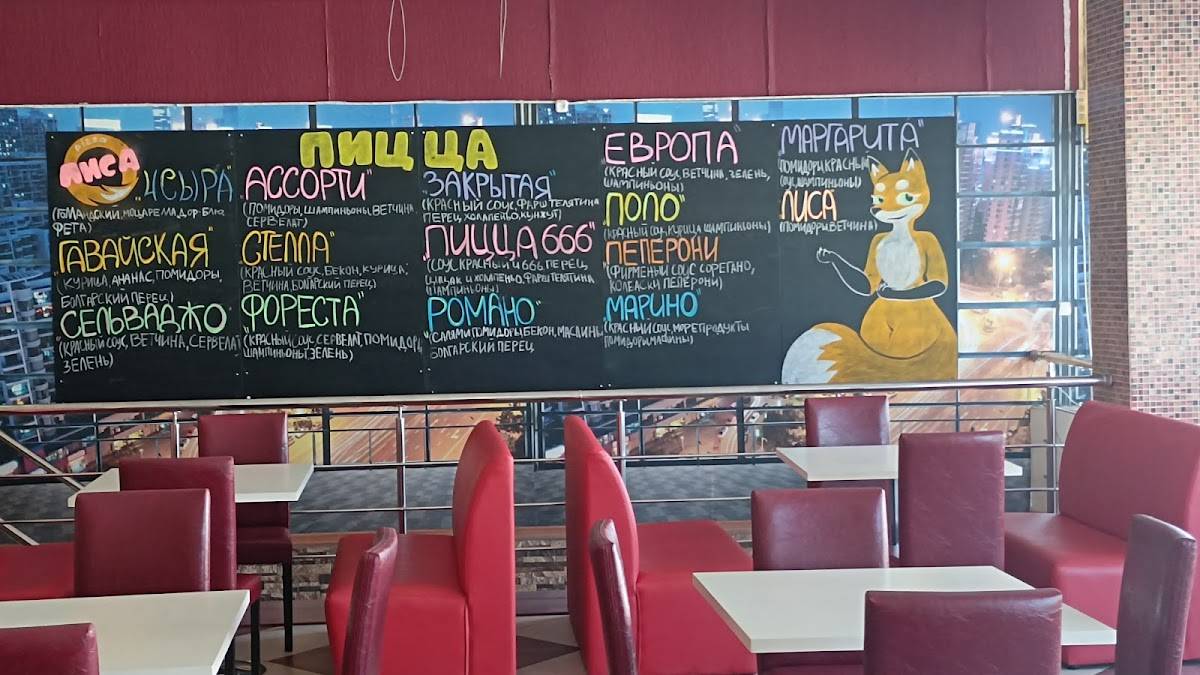 ПИЦЦА
ЛИСА
"4 СЫРА"
(ГОЛЛАНДСКИЙ, МОЦАРЕЛЛА, ДОР-БЛЮ,
ФЕТА)
"ГАВАЙСКАЯ"
(КУРИЦА, АНАНАС, ПОМИДОРЫ,
БОЛГАРСКИЙ ПЕРЕЦ)
"СЕЛЬВАДЖО"
(КРАСНЫЙ СОУС, ВЕТЧИНА, СЕРВЕЛАТ,
ЗЕЛЕНЬ)
"АССОРТИ"
(ПОМИДОРЫ, ШАМПИНЬОНЫ, ВЕТЧИНА,
СЕРВЕЛАТ)
"СТЕЛЛА"
(КРАСНЫЙ СОУС, БЕКОН, КУРИЦА,
ВЕТЧИНА, БОЛГАРСКИЙ ПЕРЕЦ)
"ФОРЕСТА"
(КРАСНЫЙ СОУС, СЕРВЕЛАТ, ПОМИДОРЫ,
ШАМПИНЬОНЫ, ЗЕЛЕНЬ)
"ЗАКРЫТАЯ"
(КРАСНЫЙ СОУС, ФАРШ ТЕЛЯТИНА,
ПЕРЕЦ, ХОЛАПЕНЬО, КУНЖУТ)
"ПИЦЦА 666"
(СОУС КРАСНЫЙ И 666, ПЕРЕЦ
И ХОЛАПЕНЬО, ФАРШ ТЕЛЯТИНА,
ШАМПИНЬОНЫ)
"РОМАНО"
(САЛЯМИ, ПОМИДОРЫ, БЕКОН, МАСЛИНЫ,
БОЛГАРСКИЙ ПЕРЕЦ
"ЕВРОПА"
(КРАСНЫЙ СОУС, ВЕТЧИНА, ЗЕЛЕНЬ,
ШАМПИНЬОНЫ)
"ПОЛО"
(КРАСНЫЙ СОУС, КУРИЦА, ШАМПИНЬОНЫ)
"ПЕПЕРОНИ
(ФИРМЕНЫЙ СОУС СОРЕГАНО,
КОЛБАСКИ ПЕПЕРОНИ)
"МАРИНО"
(КРАСНЫЙ СОУС, МОРЕПРОДУКТЫ
ПОМИДОРЫ, МАСЛИНЫ)
"МАРГАРИТА"
(ПОМИДОРЫ, КРАСНЫЙ
СОУС, ШАМПИНЬОНЫ)
"ЛИСА
(ПОМИДОРЫ, ВЕТЧИНА)